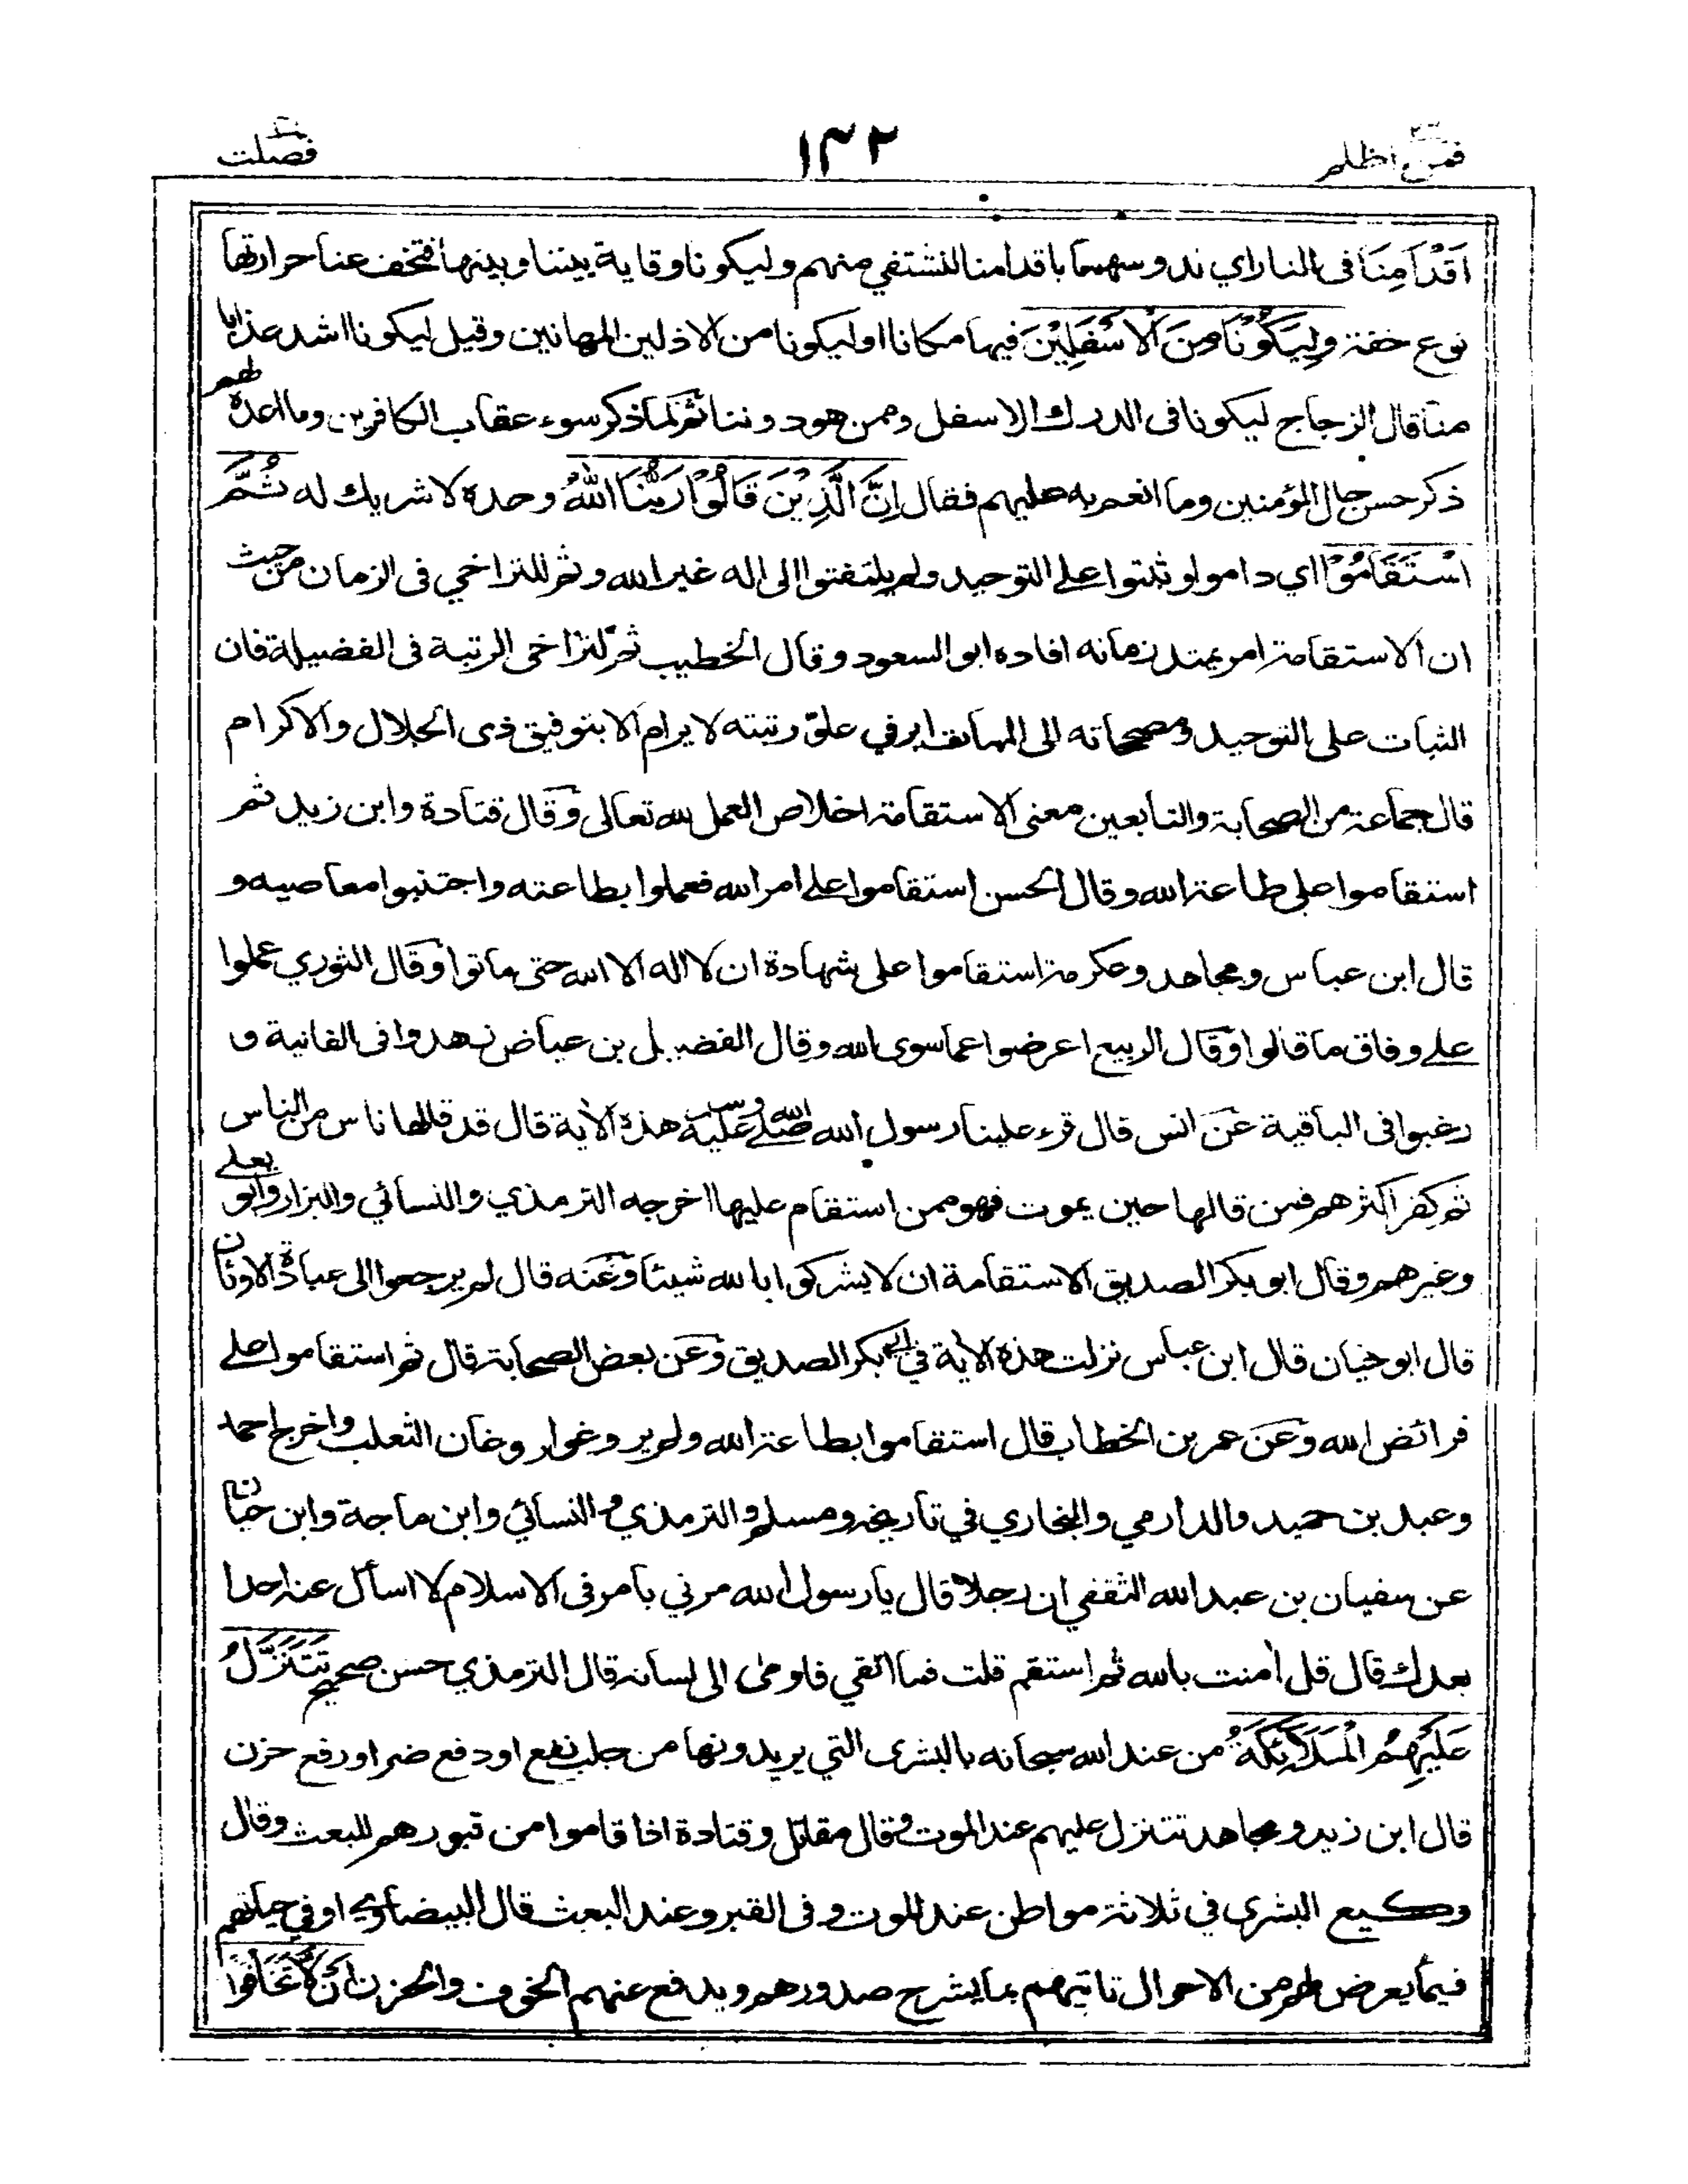 فمن اظلم ١٣٢ فصلت
اَقْدَامِنَا فى النار اي ندوسهما باقدامنا لنشتفي منهم وليكونا وقاية بيننا وبينها فتخف عنا حرارتها
نوع خفة وَلِيَكُوْنَا مِنَ الْاَسْفَلِيْنَ فيها مكانا او ليكونا من الاذلين المهانين وقيل ليكونا اشد عذابا
منا قال الزجاج ليكونا فى الدرك الاسفل وممن هو دوننا ثم لما ذكر سوء عقاب الكافرين وما اعده لهم
ذكر حسن حال المؤمنين وما انعم به عليهم فقال اِنَّ الَّذِيْنَ قَالُوْا رَبُّنَا اللهُ وحده لا شريك له ثُمَّ
اسْتَقَامُوْا اي داموا وثبتوا على التوحيد ولم يلتفتوا الى اله غير الله وثم للتراخي فى الزمان من حيث
ان الاستقامة امر يمتد زمانه افاده ابو السعود وقال الخطيب ثم لتراخى الرتبة فى الفضيلة فان
الثبات على التوحيد ومصححاته الى الممات امر في علوّ رتبته لا يرام الا بتوفيق ذى الجلال والاكرام
قال جماعة من الصحابة والتابعين معنى الاستقامة اخلاص العمل لله تعالى وقال قتادة وابن زيد ثم
استقاموا على طاعة الله وقال الحسن استقاموا على امر الله فعملوا بطاعته واجتنبوا معاصيه و
قال ابن عباس ومجاهد وعكرمة استقاموا على شهادة ان لا اله الا الله حتى ماتوا وقال الثوري عملوا
على وفاق ما قالوا وقال الربيع اعرضوا عما سوى الله وقال الفضيل بن عياض زهدوا فى الفانية و
رغبوا فى الباقية عن انس قال قرء علينا رسول الله صلى الله عليه وسلم هذه الاية قال قد قالها ناس من الناس
ثم كفر اكثرهم فمن قالها حين يموت فهو ممن استقام عليها اخرجه الترمذي والنسائي والبزار وابو يعلى
وغيرهم وقال ابو بكر الصديق الاستقامة ان لا يشركوا بالله شيئا وعنه قال لم يرجعوا الى عبادة الاوثان
قال ابو حيان قال ابن عباس نزلت هذه الاية في ابي بكر الصديق وعن بعض الصحابة قال ثم استقاموا على
فرائض الله وعن عمر بن الخطاب قال استقاموا بطاعة الله ولم يروغوا روغان الثعلب واخرج احمد
وعبد بن حميد والدارمي والبخاري في تاريخه ومسلم والترمذي والنسائي وابن ماجة وابن حبان
عن سفيان بن عبد الله الثقفي ان رجلا قال يا رسول الله مرني بامر فى الاسلام لا اسأل عنه احدا
بعدك قال قل اٰمنت بالله ثم استقم قلت فما اتقي فاومى الى لسانه قال الترمذي حسن صحيح تَتَنَزَّلُ
عَلَيْهِمُ الْمَلَائِكَةُ من عند الله سبحانه بالبشرى التي يريدونها من جلب نفع او دفع ضر او رفع حزن
قال ابن زيد ومجاهد تتنزل عليهم عند الموت وقال مقاتل وقتادة اذا قاموا من قبورهم للبعث وقال
وكيع البشرى في ثلاثة مواطن عند الموت وفى القبر وعند البعث قال البيضاوي او في حياتهم
فيما يعرض لهم من الاحوال تاتيهم بما يشرح صدورهم ويدفع عنهم الخوف والحزن اَنْ لَّا تَخَافُوْا